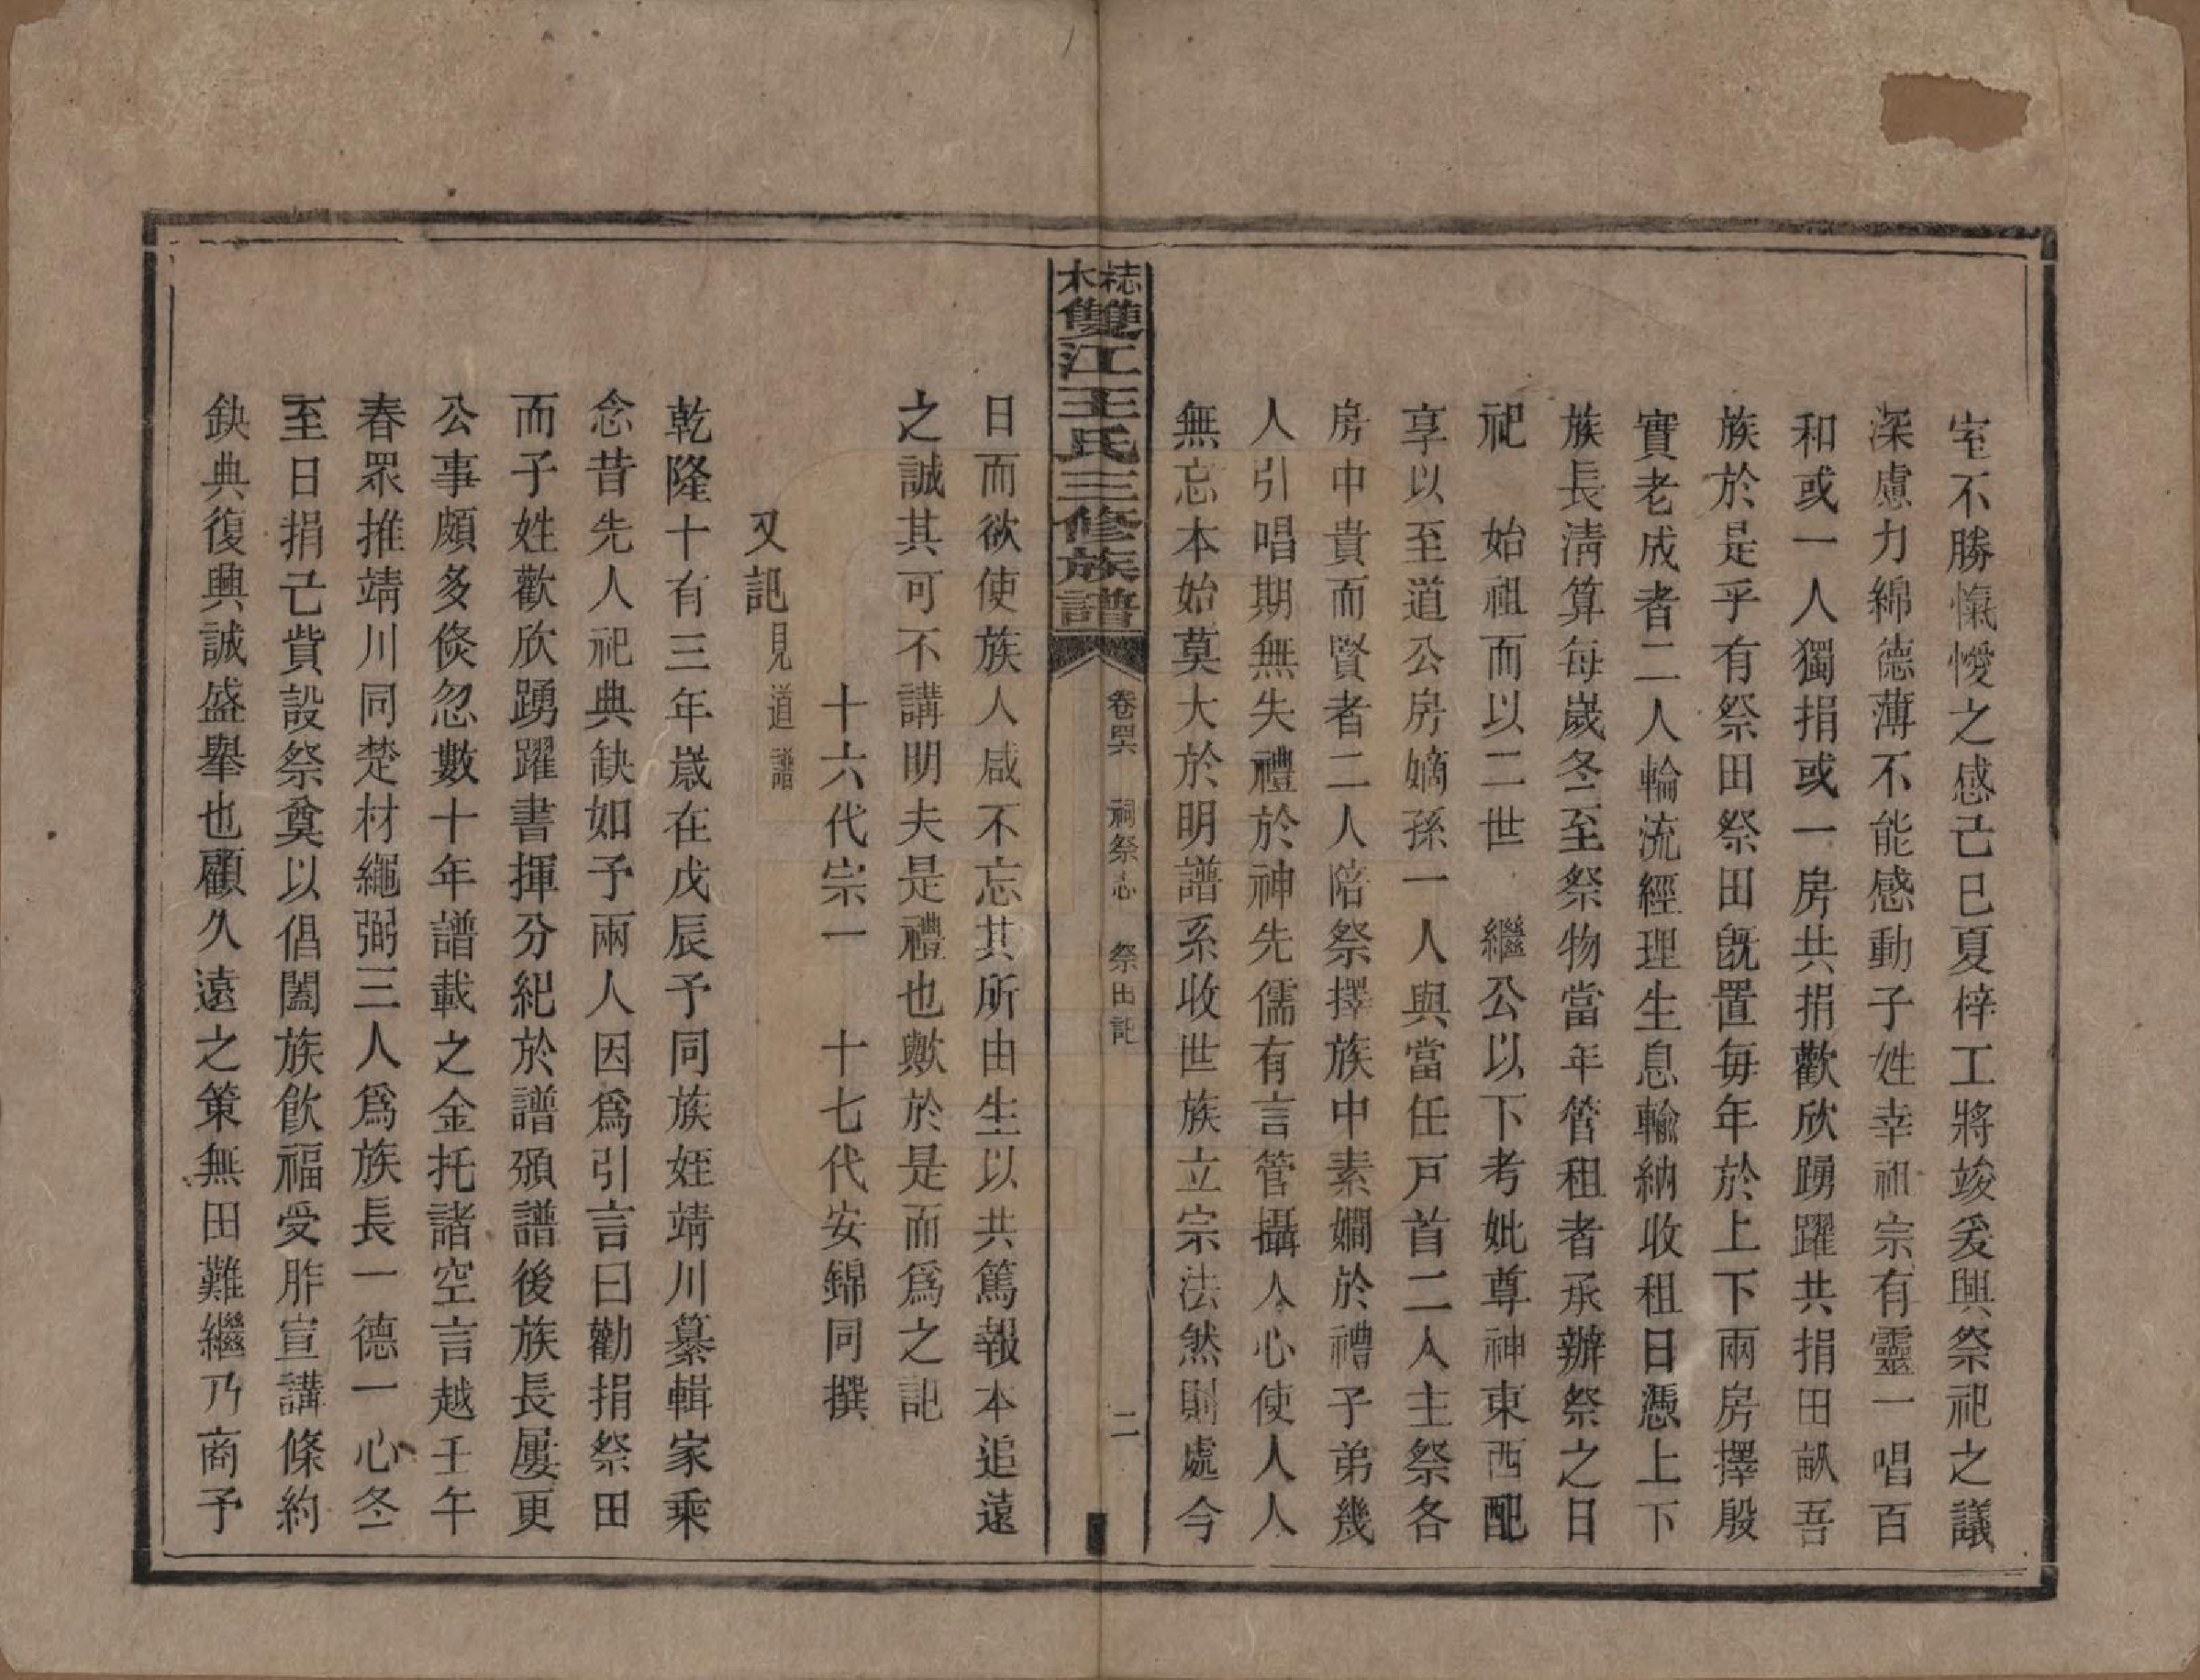 室不勝愾懓之感己巳夏梓工將竣爰興祭祀之議
深慮力綿德薄不能感動子姓幸祖宗有靈一唱百
和或一人獨捐或一房共捐歡欣踴躍共捐田畝吾
族於是乎有祭田祭田既置每年於上下兩房擇殷
實老成者二人輪流經理生息輸納收租日憑上下
族長清算每歲冬至祭物當年管租者承辦祭之日
祀　始祖而以二世　繼公以下考妣尊神東西配
享以至道公房嫡孫一人與當任戸首二人主祭各
房中貴而賢者二人陪祭擇族中素嫻於禮子弟幾
人引唱期無失禮於神先儒有言管攝人心使人人
無忘本始莫大於明譜系收世族立宗法然則處今
木誌雙江王氏三修族譜
卷四六　祠祭志　祭田記　二
日而欲使族人咸不忘其所由生以共篤報本追遠
之誠其可不講明夫是禮也歟於是而爲之記
十六代宗一　十七代安錦同撰
又記見道譜
乾隆十有三年歲在戊辰予同族姪靖川纂輯家乘
念昔先人祀典缺如予兩人因爲引言曰勸捐祭田
而子姓歡欣踴躍書揮分紀於譜頒譜後族長屢更
公事頗多倐忽數十年譜載之金托諸空言越壬午
春眾推靖川同楚材繩弼三人爲族長一德一心冬
至日捐己貲設祭奠以倡闔族飲福受胙宣講條約
缺典復興誠盛舉也顧久遠之策無田難繼乃商予